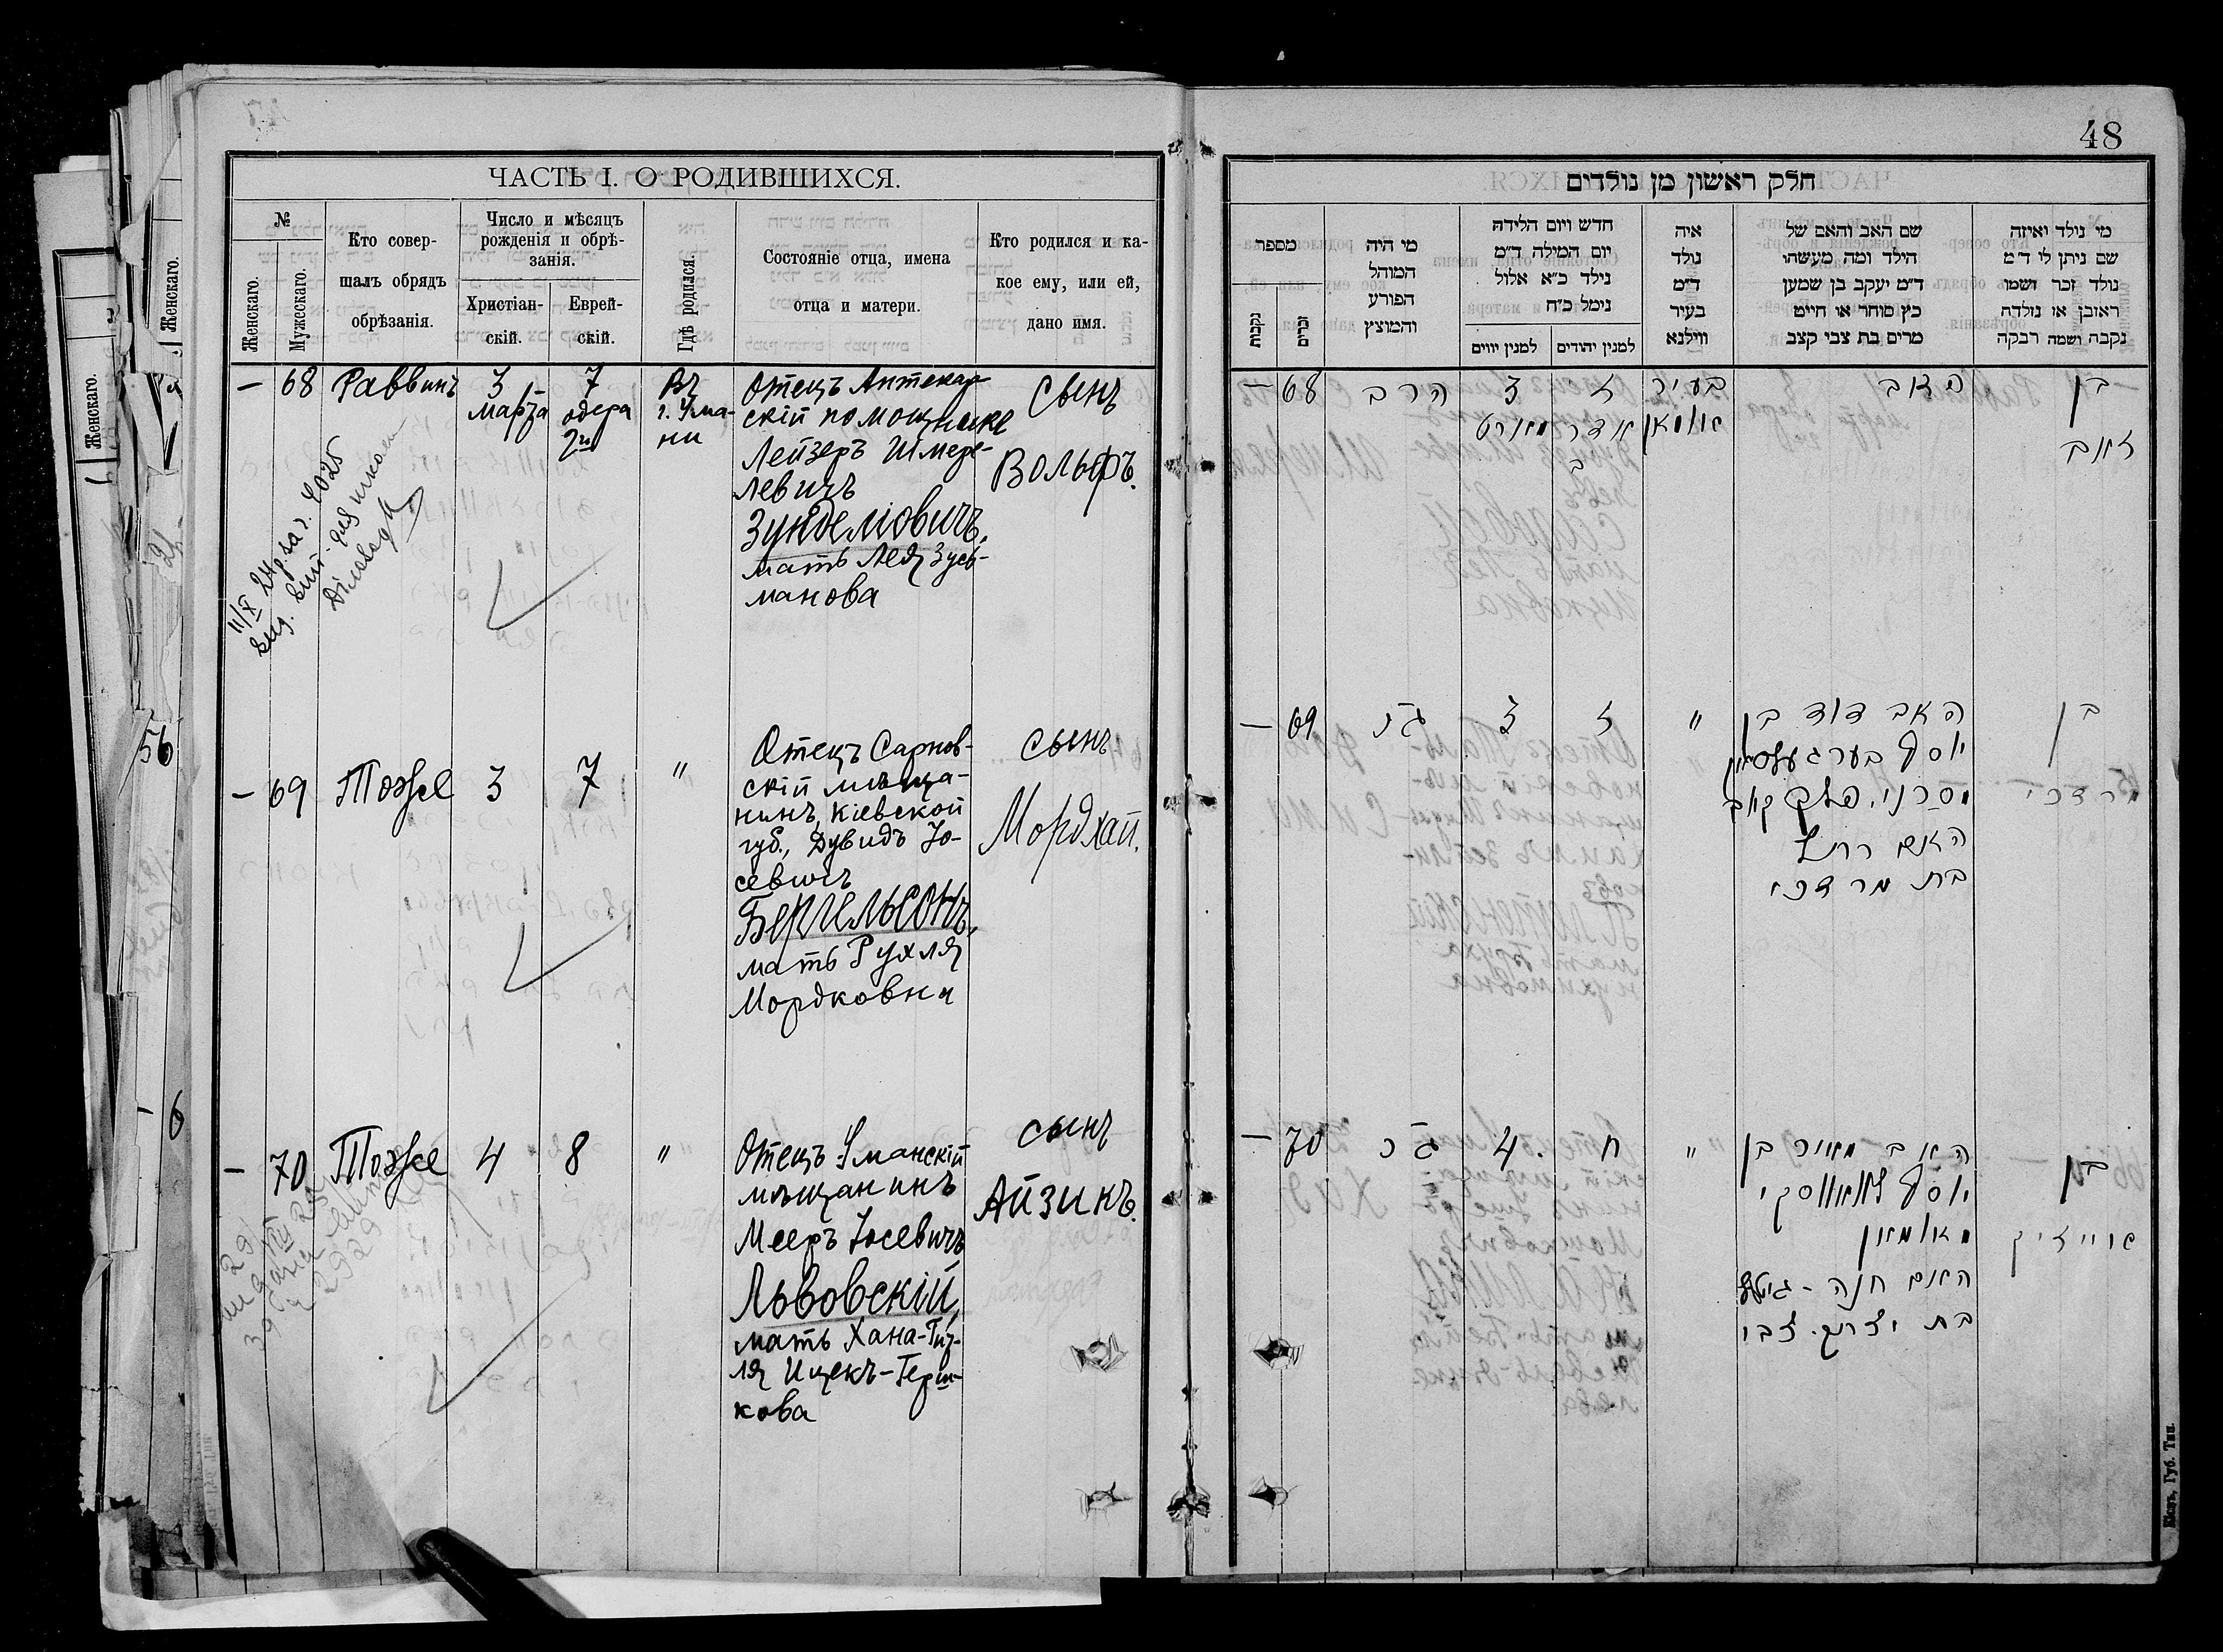 48
ЧАСТЬ I. О РОДИВШИХСЯ.
№
Женскаго.
Мужескаго.
Кто совер-
шалъ обрядъ
обрѣзанія.
Число и мѣсяцъ
рожденія и обрѣ-
занія.
Христіан-
скій.
Еврей-
скій.
Гдѣ родился.
Состояніе отца, имена
отца и матери.
Кто родился и ка-
кое ему, или ей,
дано имя.
— 68 Раввинъ
3
марта
7
одера
2го
Въ
г. Ума-
ни
Отецъ Аптекар-
скій помощникъ
Лейзеръ Шмере-
левичъ
Зунделіовичъ,
мать Лея Зусь-
манова
сынъ
Вольфъ.
— 69 Тоже 3 7 "
Отецъ Сарнов-
скій мѣща-
нинъ, Кіевской
губ., Дувидъ Іо-
севичъ
Бергельсонъ,
мать Рухля
Мордковна
сынъ
Мордхай.
— 70 Тоже 4 8 "
Отецъ Уманскій
мѣщанинъ
Мееръ Іосевичъ
Львовскій,
мать Хана-Гит-
ля Ицекъ-Герш-
кова
сынъ
Айзикъ.
חלק ראשון מן נולדים
מספר
נקבות
זכרים
מי היה
המוהל
הפורע
והמוצץ
חדש ויום הלידה
יום המילה ד״מ
נולד כ״א אלול
נימל כ״ח
למנין יווים
למנין יהודים
איה
נולד
ד״מ
בעיר
ווילנא
שם האב והאם של
הילד ומה מעשהו
ד״מ יעקב בן שמען
כץ סוחר או חייט
מרים בת צבי קצב
מי נולד ואיזה
שם ניתן לו ד״מ
נולד זכר ושמו
ראובן או נולדה
נקבה ושמה רבקה
— 68
הרב
3
מארט
ז
אדר
ב
בעיר
אומאן
האב
בן
זאב
— 69
3
ז
"
האב דוד בן
יוסף בערגעלסאן
מסרני, פלך קיוב
האם רחל
בת מרדכי
בן
מרדכי
— 70
4
ח
"
האב מאיר בן
יוסף לוואווסקי
מאומאן
האם חנה - גיטל
בת יצחק. צבי
בן
אייזיק
Кіевъ, Губ. Тип.
Женскаго.
Женскаго.
56
6